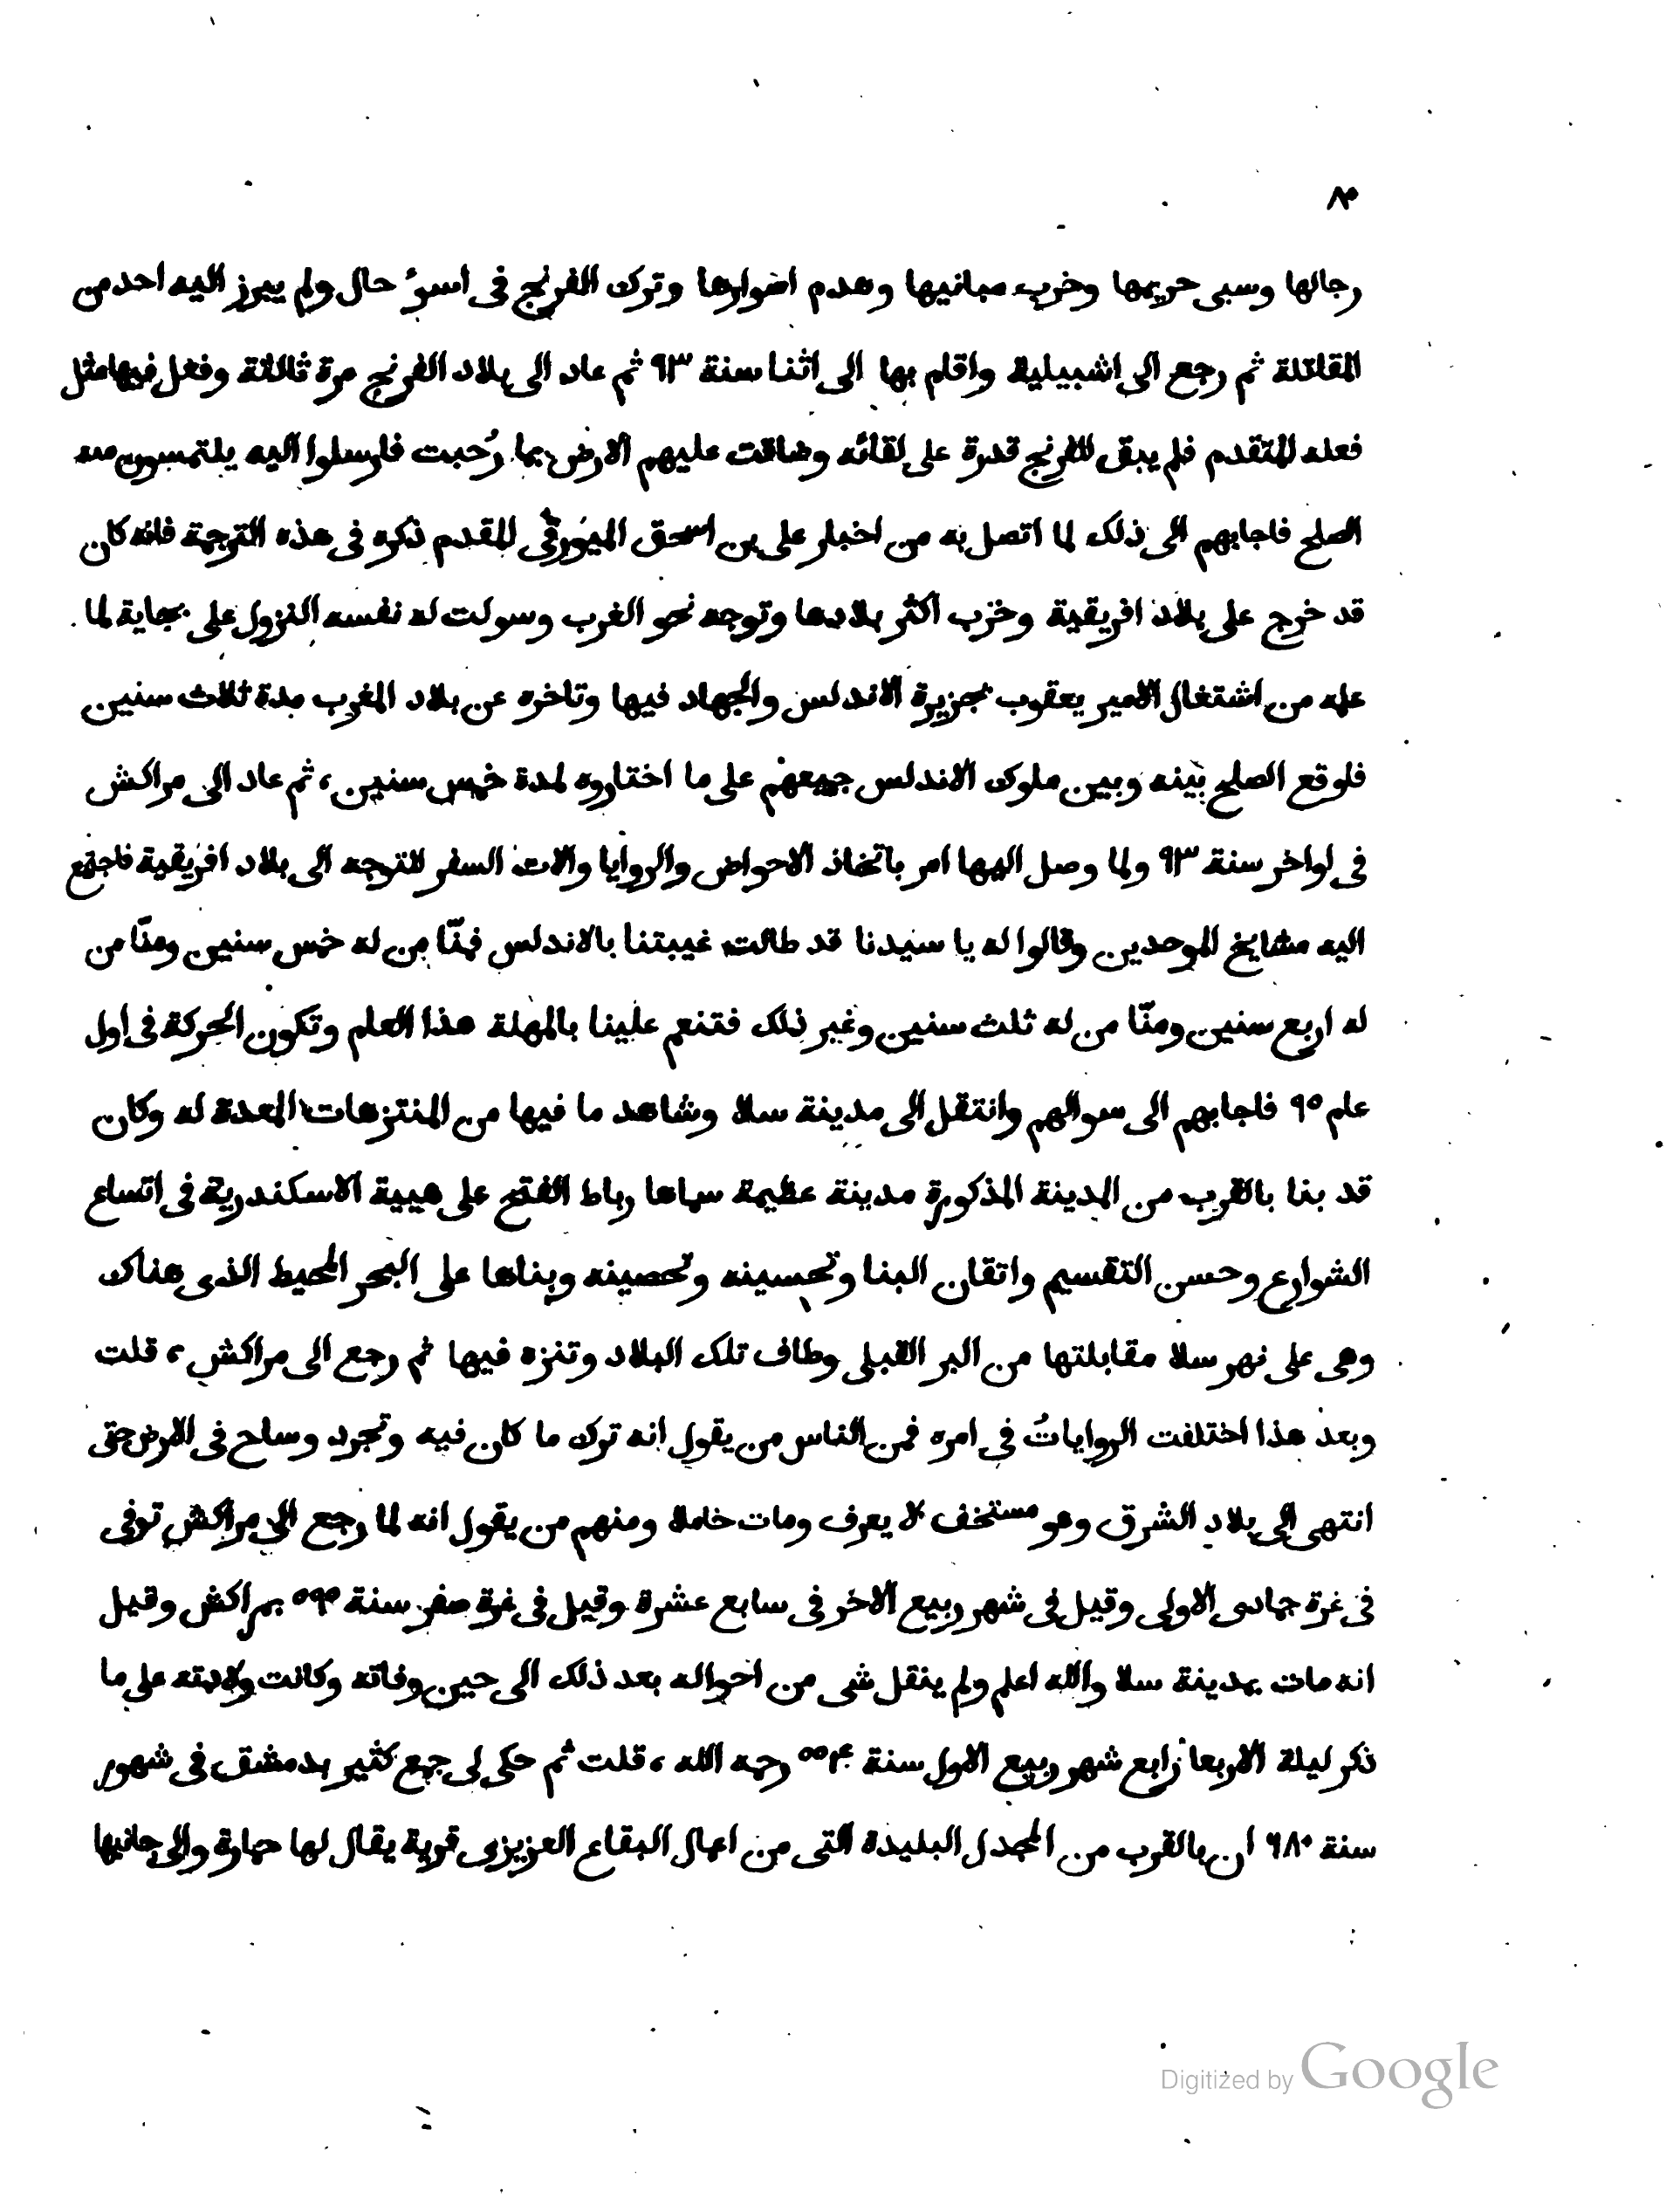 ٨٣
رجالها وسبى حريمها وخرب مبانيها وهدم اضوارها وترك الفرنج فى اسوءُ حال ولم يبرز اليه احد من
المقاتلة ثم رجع الى اشبيلية واقام بها الى اثنا سنة ٩٣ ثم عاد الى بلاد الفرنج مرة ثالثة وفعل فيها مثل
فعله المتقدم فلم يبق للفرنج قدرة على لقائه وضاقت عليهم الارض بما رُحبت فارسلوا اليه يلتمسون منه
الصلح فاجابهم الى ذلك لما اتصل به من اخبار على بن اسحق الميورقى المقدم ذكره فى هذه الترجمة فانه كان
قد خرج على بلاد افريقية وخرب اكثر بلادها وتوجه نحو الغرب وسولت له نفسه النزول على بجاية لما
علم من اشتغال الامير يعقوب بجزيرة الاندلس والجهاد فيها وتاخره عن بلاد المغرب مدة ثلاث سنين
فلوقع الصلح بينه وبين ملوك الاندلس جميعهم على ما اختاروه لمدة خمس سنين، ثم عاد الى مراكش
فى اواخر سنة ٩٣ ولما وصل اليها امر باتخاذ الاحواض والروايا والات السفر للتوجه الى بلاد افريقية فاجتمع
اليه مشايخ الموحدين وقالوا له يا سيدنا قد طالت غيبتنا بالاندلس فمنّا من له خمس سنين ومنّا من
له اربع سنين ومنّا من له ثلث سنين وغير ذلك فتنعم علينا بالمهلة هذا العام وتكون الحركة فى اول
عام ٩٥ فاجابهم الى سوالهم وانتقل الى مدينة سلا وشاهد ما فيها من المنتزهات المعدة له وكان
قد بنا بالقرب من المدينة المذكورة مدينة عظيمة سماها رباط الفتح على هيية الاسكندرية فى اتساع
الشوارع وحسن التقسيم واتقان البنا وتحسينه وتحصينه وبناها على البحر المحيط الذى هناك
وهى على نهر سلا مقابلتها من البر القبلى وطاف تلك البلاد وتنزه فيها ثم رجع الى مراكش، قلت
وبعد هذا اختلفت الروايات فى امره فمن الناس من يقول انه ترك ما كان فيه وتجرد وساح فى الارض حتى
انتهى الى بلاد الشرق وهو مستخف لا يعرف ومات خاملا ومنهم من يقول انه لما رجع الى مراكش توفى
فى غرة جمادى الاولى وقيل فى شهر ربيع الاخر فى سابع عشرة وقيل فى غرة صفر سنة ٥٩٥ بمراكش وقيل
انه مات بمدينة سلا والله اعلم ولم ينقل شى من احواله بعد ذلك الى حين وفاته وكانت ولادته على ما
ذكر ليلة الاربعا رابع شهر ربيع الاول سنة ٥٥٤ رحمه الله، قلت ثم حكى لى جمع كثير بدمشق فى شهور
سنة ٦٨٠ ان بالقرب من المجدل البليدة التى من اعمال البقاع العزيزى قرية يقال لها حمارة والى جانبها
Digitized by Google